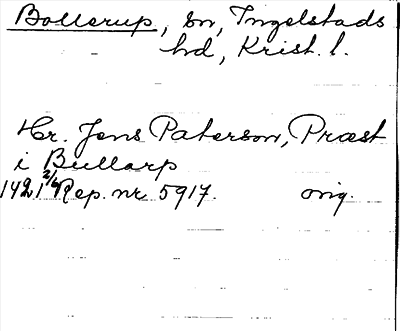 Bollerup, sn, Ingelstads
hd, Krist. l.
Hr. Jens Paterson, Præst
i Bullarp
1421 2/6 Rep. nr 5917. orig.